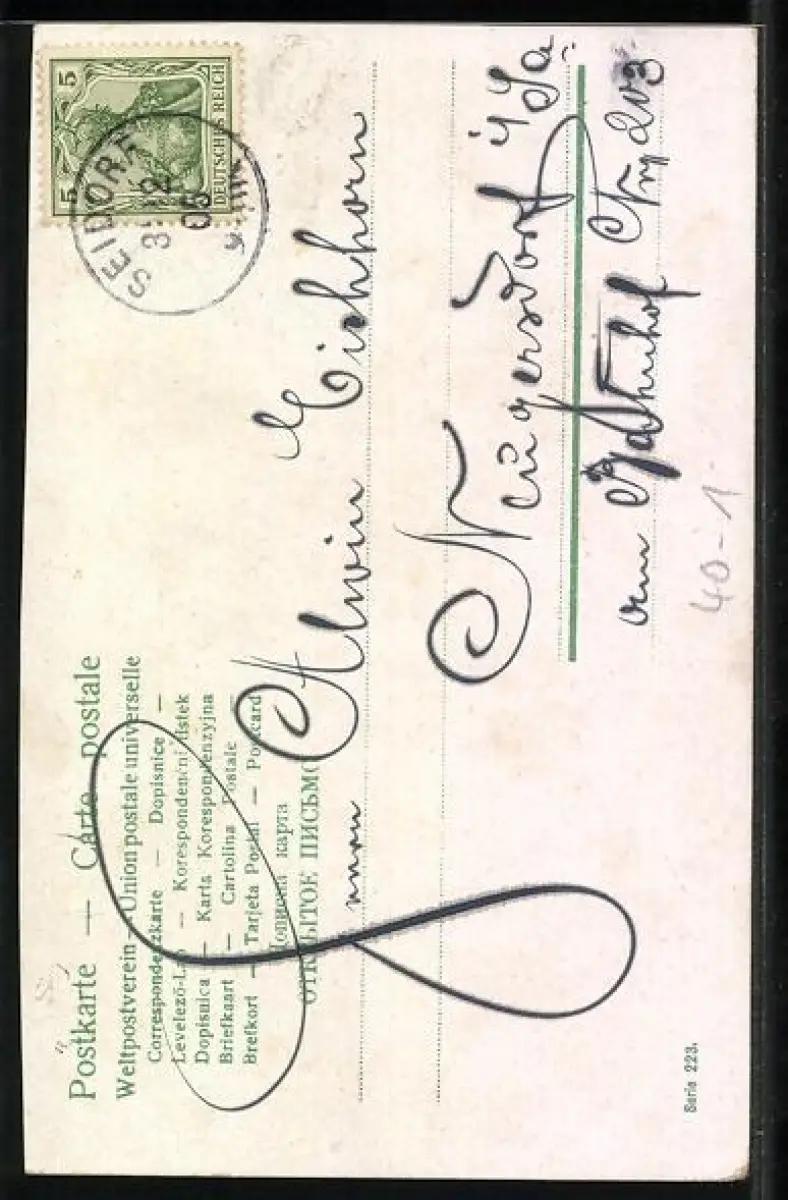 Postkarte — Carte postale
Weltpostverein — Union postale universelle
Correspondenzkarte — Dopisnice —
Levelező-Lap — Korespondenční lístek
Dopisnica — Karta Korespondenzyjna
Briefkaart — Cartolina Postale —
Brefkort — Tarjeta Postal — Postcard
Дописна карта
ОТКРЫТОЕ ПИСЬМО
5 5
DEUTSCHES REICH
SEIDORF
05
Alwin Eichhorn
Neugersdorf i/Sa
am Bahnhof No 203
40-1
Serie 223.